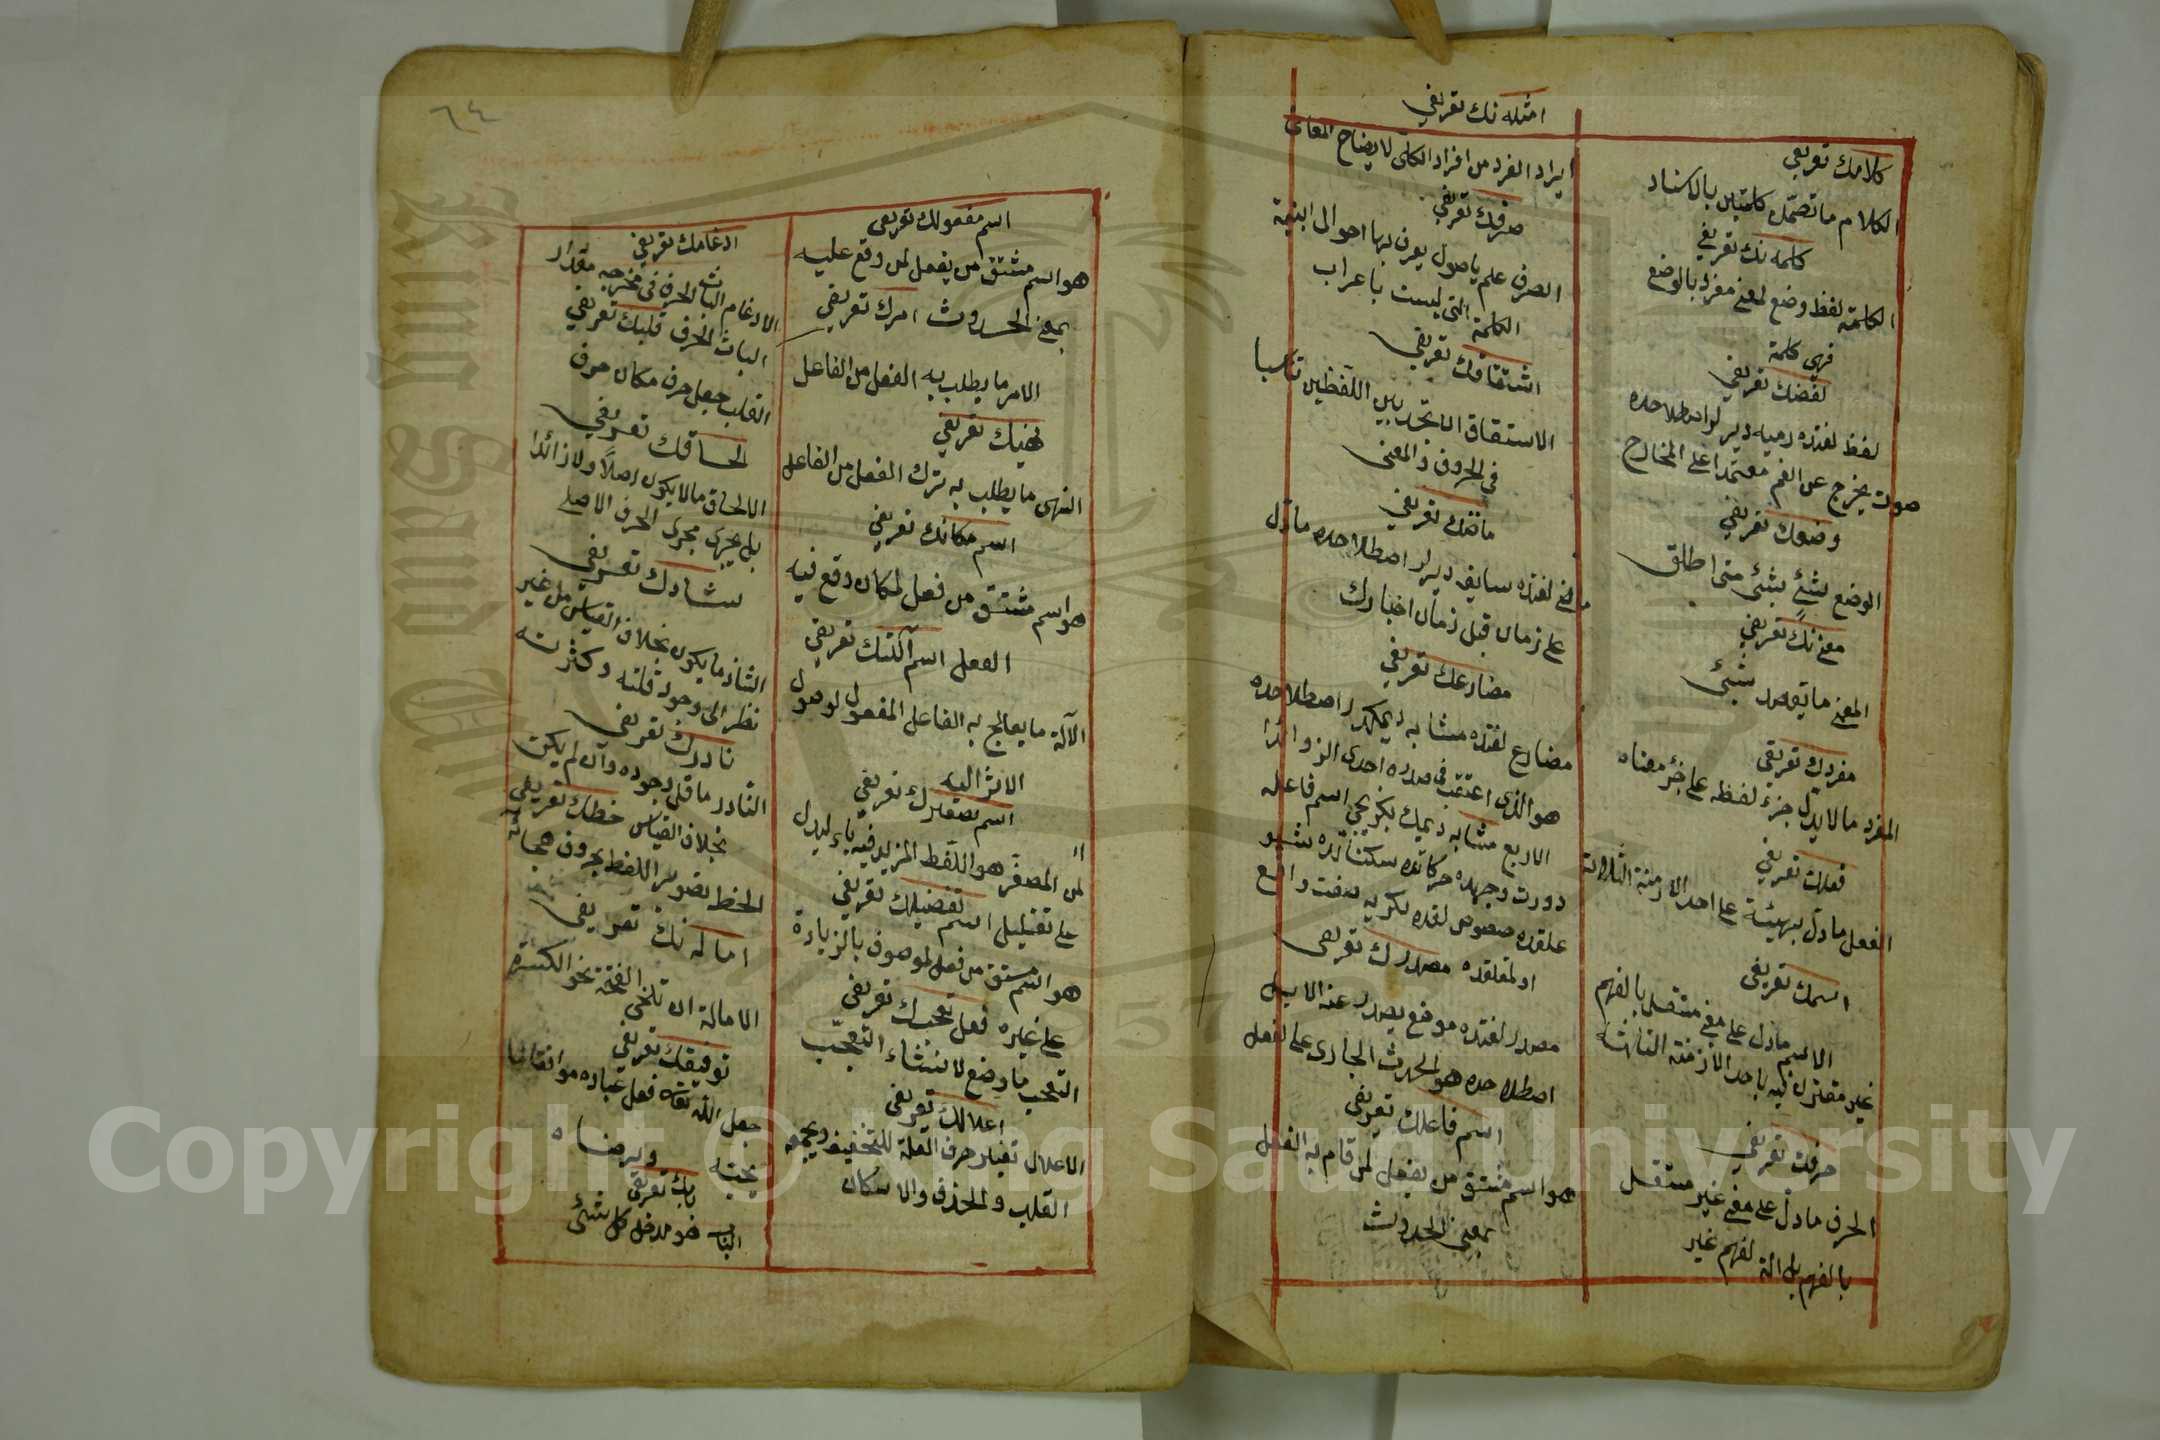 كلامك تعريفى
الكلام ما تضمن كلمتين بالاسناد
كلمه نك تعريفى
الكلمة لفظ وضع لمعنى مفرد بالوضع
فهى كلمة
لفضك تعريفى
لفظ لغتده رميه ديرلر اصطلاحده
صوت يخرج عن الفم معتمدا على المخارج
وضعك تعريفى
الوضع شئ بشئ متى اطلق
معنى نك تعريفى
المعنى ما يقصد شئى
مفردك تعريفى
المفرد ما لا يدل جزء لفظه على جزء معناه
فعلك تعريفى
الفعل ما دل بهيئة على احد الازمنة الثلاثة
اسمك تعريفى
الاسم ما دل على معنى مستقل بالفهم
غير مقترن فيه باحد الازمنة الثلاثة
حرفك تعريفى
الحرف ما دل على معنى غير مستقل
بالفهم بل الة لفهم غير
امثله نك تعريفى
ايراد الفرد من افراد الكلى لايضاح المعانى
صرفك تعريفى
الصرف علم باصول يعرف بها احوال ابنية
الكلمة التى ليست باعراب
اشتقاقك تعريفى
الاشتقاق ان تجد بين اللفظين تناسبا
فى الحروف والمعنى
ماضك تعريفى
ماضى لغتده سابق ديرلر اصطلاحده ما دل
على زمان قبل زمان اخبارك
مضارعك تعريفى
مضارع لغتده مشابه ديمكدر اصطلاحده
هو الذى اعتقب فى صدره احدى الزوائد
الاربع مشابه ديمك بكزيجى اسم فاعله
دورت وجهده حركاتده سكناتده
علقده خصوص لغده نكره يه صفت واقع
اولمقلقده مصدرك تعريفى
مصدر لغتده موضع يصدر عنه الابيل
اصطلاحده هو الحدث الجارى على الفعل
اسم فاعلك تعريفى
هو اسم مشتق من يفعل لمن قام به الفعل
بمعنى الحدوث
٦٤
اسم مفعولك تعريفى
هو اسم مشتق من يفعل لمن وقع عليه
بمعنى الحدوث امرك تعريفى
الامر ما يطلب به الفعل من الفاعل
نهيك تعريفى
النهى ما يطلب به ترك الفعل من الفاعل
اسم مكانك تعريفى
هو اسم مشتق من فعل لمكان وقع فيه
الفعل اسم آلتك تعريفى
الآلة ما يعالج به الفاعل المفعول لوصول
الاثر اليه
اسم تصغيرك تعريفى
لمن المصغر هو اللفظ المزيد فيه ياء ليدل
على تقليل اسم تفضيلك تعريفى
هو اسم مشتق من فعل لموصوف بالزيادة
على غيره فعل تعجبك تعريفى
التعجب ما وضع لانشاء التعجب
اعلالك تعريفى
الاعلال تغيير حرف العلة للتخفيف ويجمعه
القلب والحذف والاسكان
ادغامك تعريفى
الادغام الباث الحرف فى مخرجه مقدار
الباث الحرف قلبك تعريفى
القلب جعل حرف مكان حرف
الحاقك تعريفى
الالحاق ما لا يكون اصلا ولا زائدا
بل يجرى مجرى الحرف الاصلى
شادك تعريفى
الشاذ ما يكون بخلاف القياس من غير
نظر الى وجود قلته وكثرته
نادرك تعريفى
النادر ما قل وجوده وان لم يكن
بخلاف القياس خطك تعريفى
الخط تصوير اللفظ بحروف هجائه
اماله نك تعريفى
الامالة ان تلخى الفتحة نحو الكسرة
توفيقك تعريفى
جعل الله تعالى فعل عباده موافقا لما
يحبه ويرضاه
بابك تعريفى
الباب هو مدخل كل شئ
Copyright © King Saud University